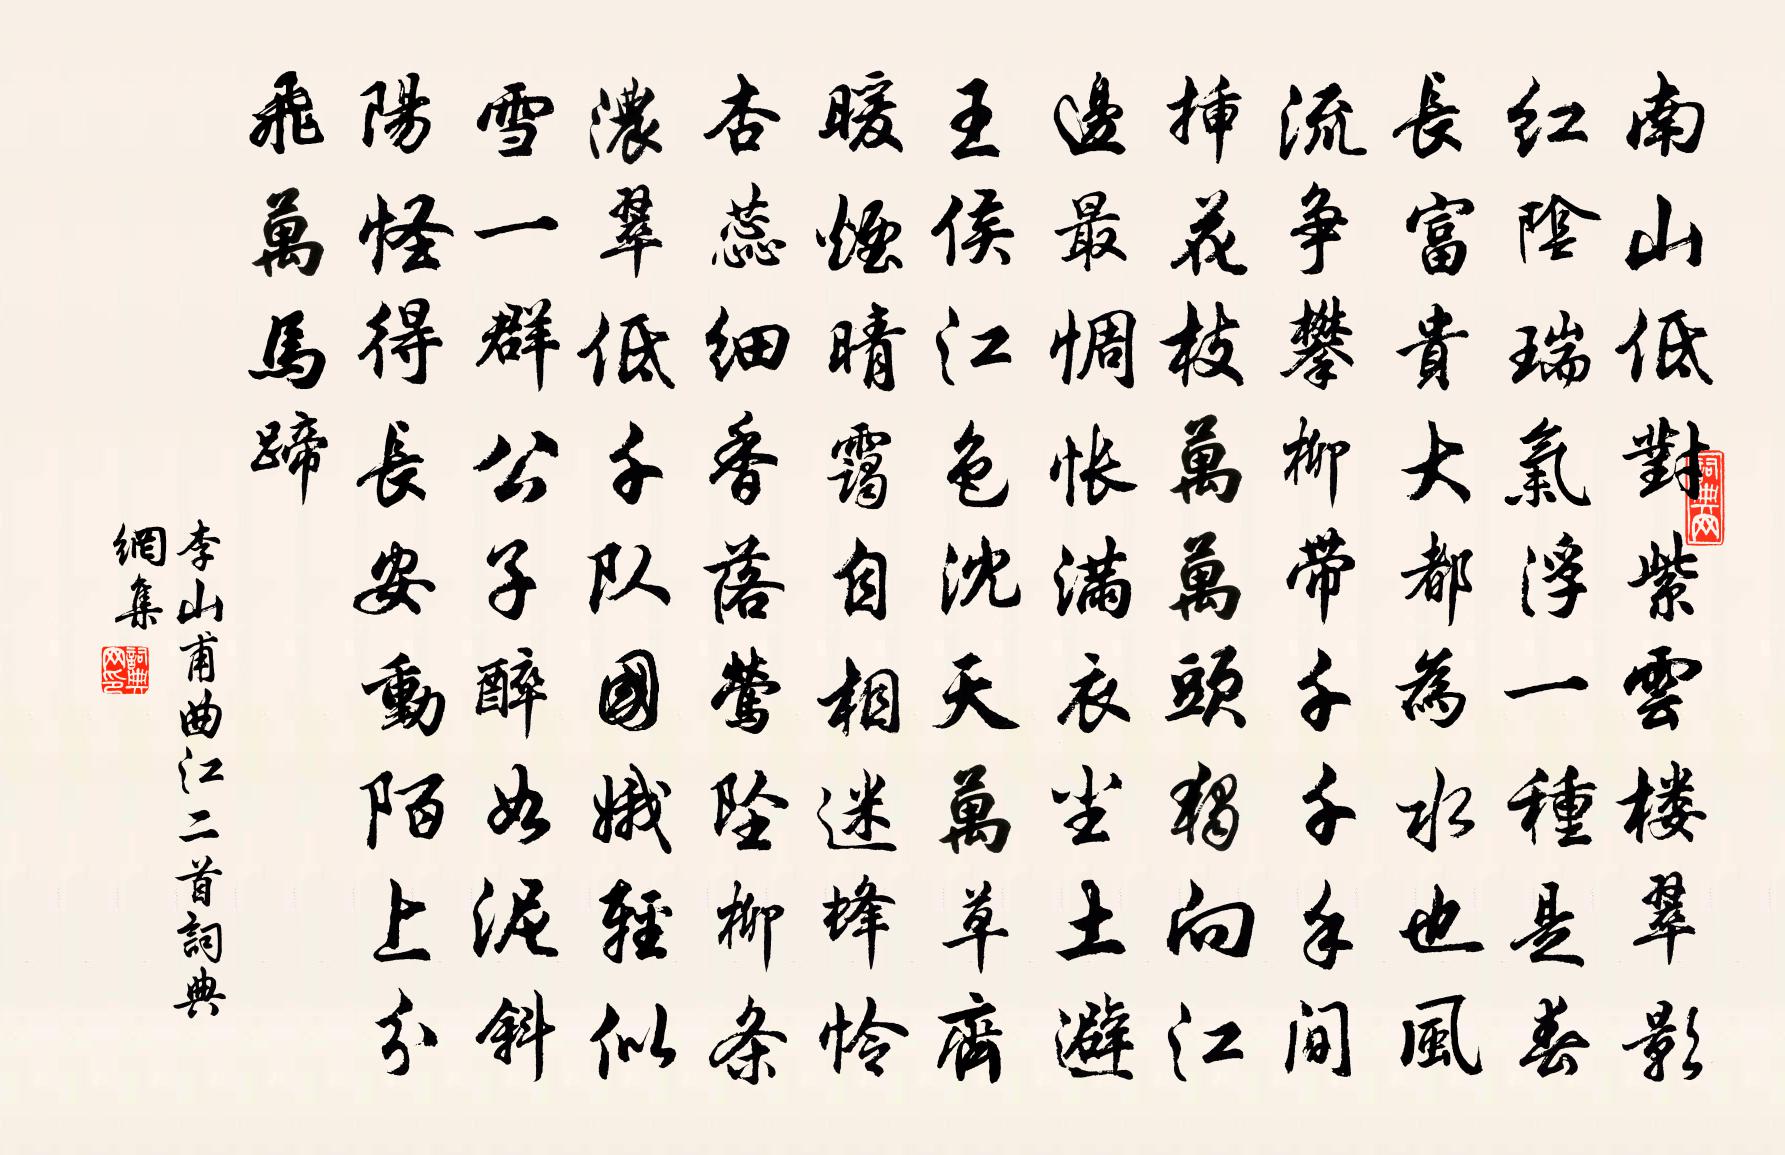 南山低對紫雲楼翠影
红陰瑞氣浮一種是春
長富貴大都為水也風
流争攀柳带千千手间
挿花枝萬萬頭獨向江
邊最惆怅满衣尘土避
王侯江色沈天萬草齊
暖煙晴靄自相迷蜂怜
杏蕊细香落鶯坠柳条
濃翠低千队國娥輕似
雪一群公子醉如泥斜
陽怪得長安動陌上分
飛萬馬蹄
李山甫曲江二首詞典
網集
詞典网
詞典网印